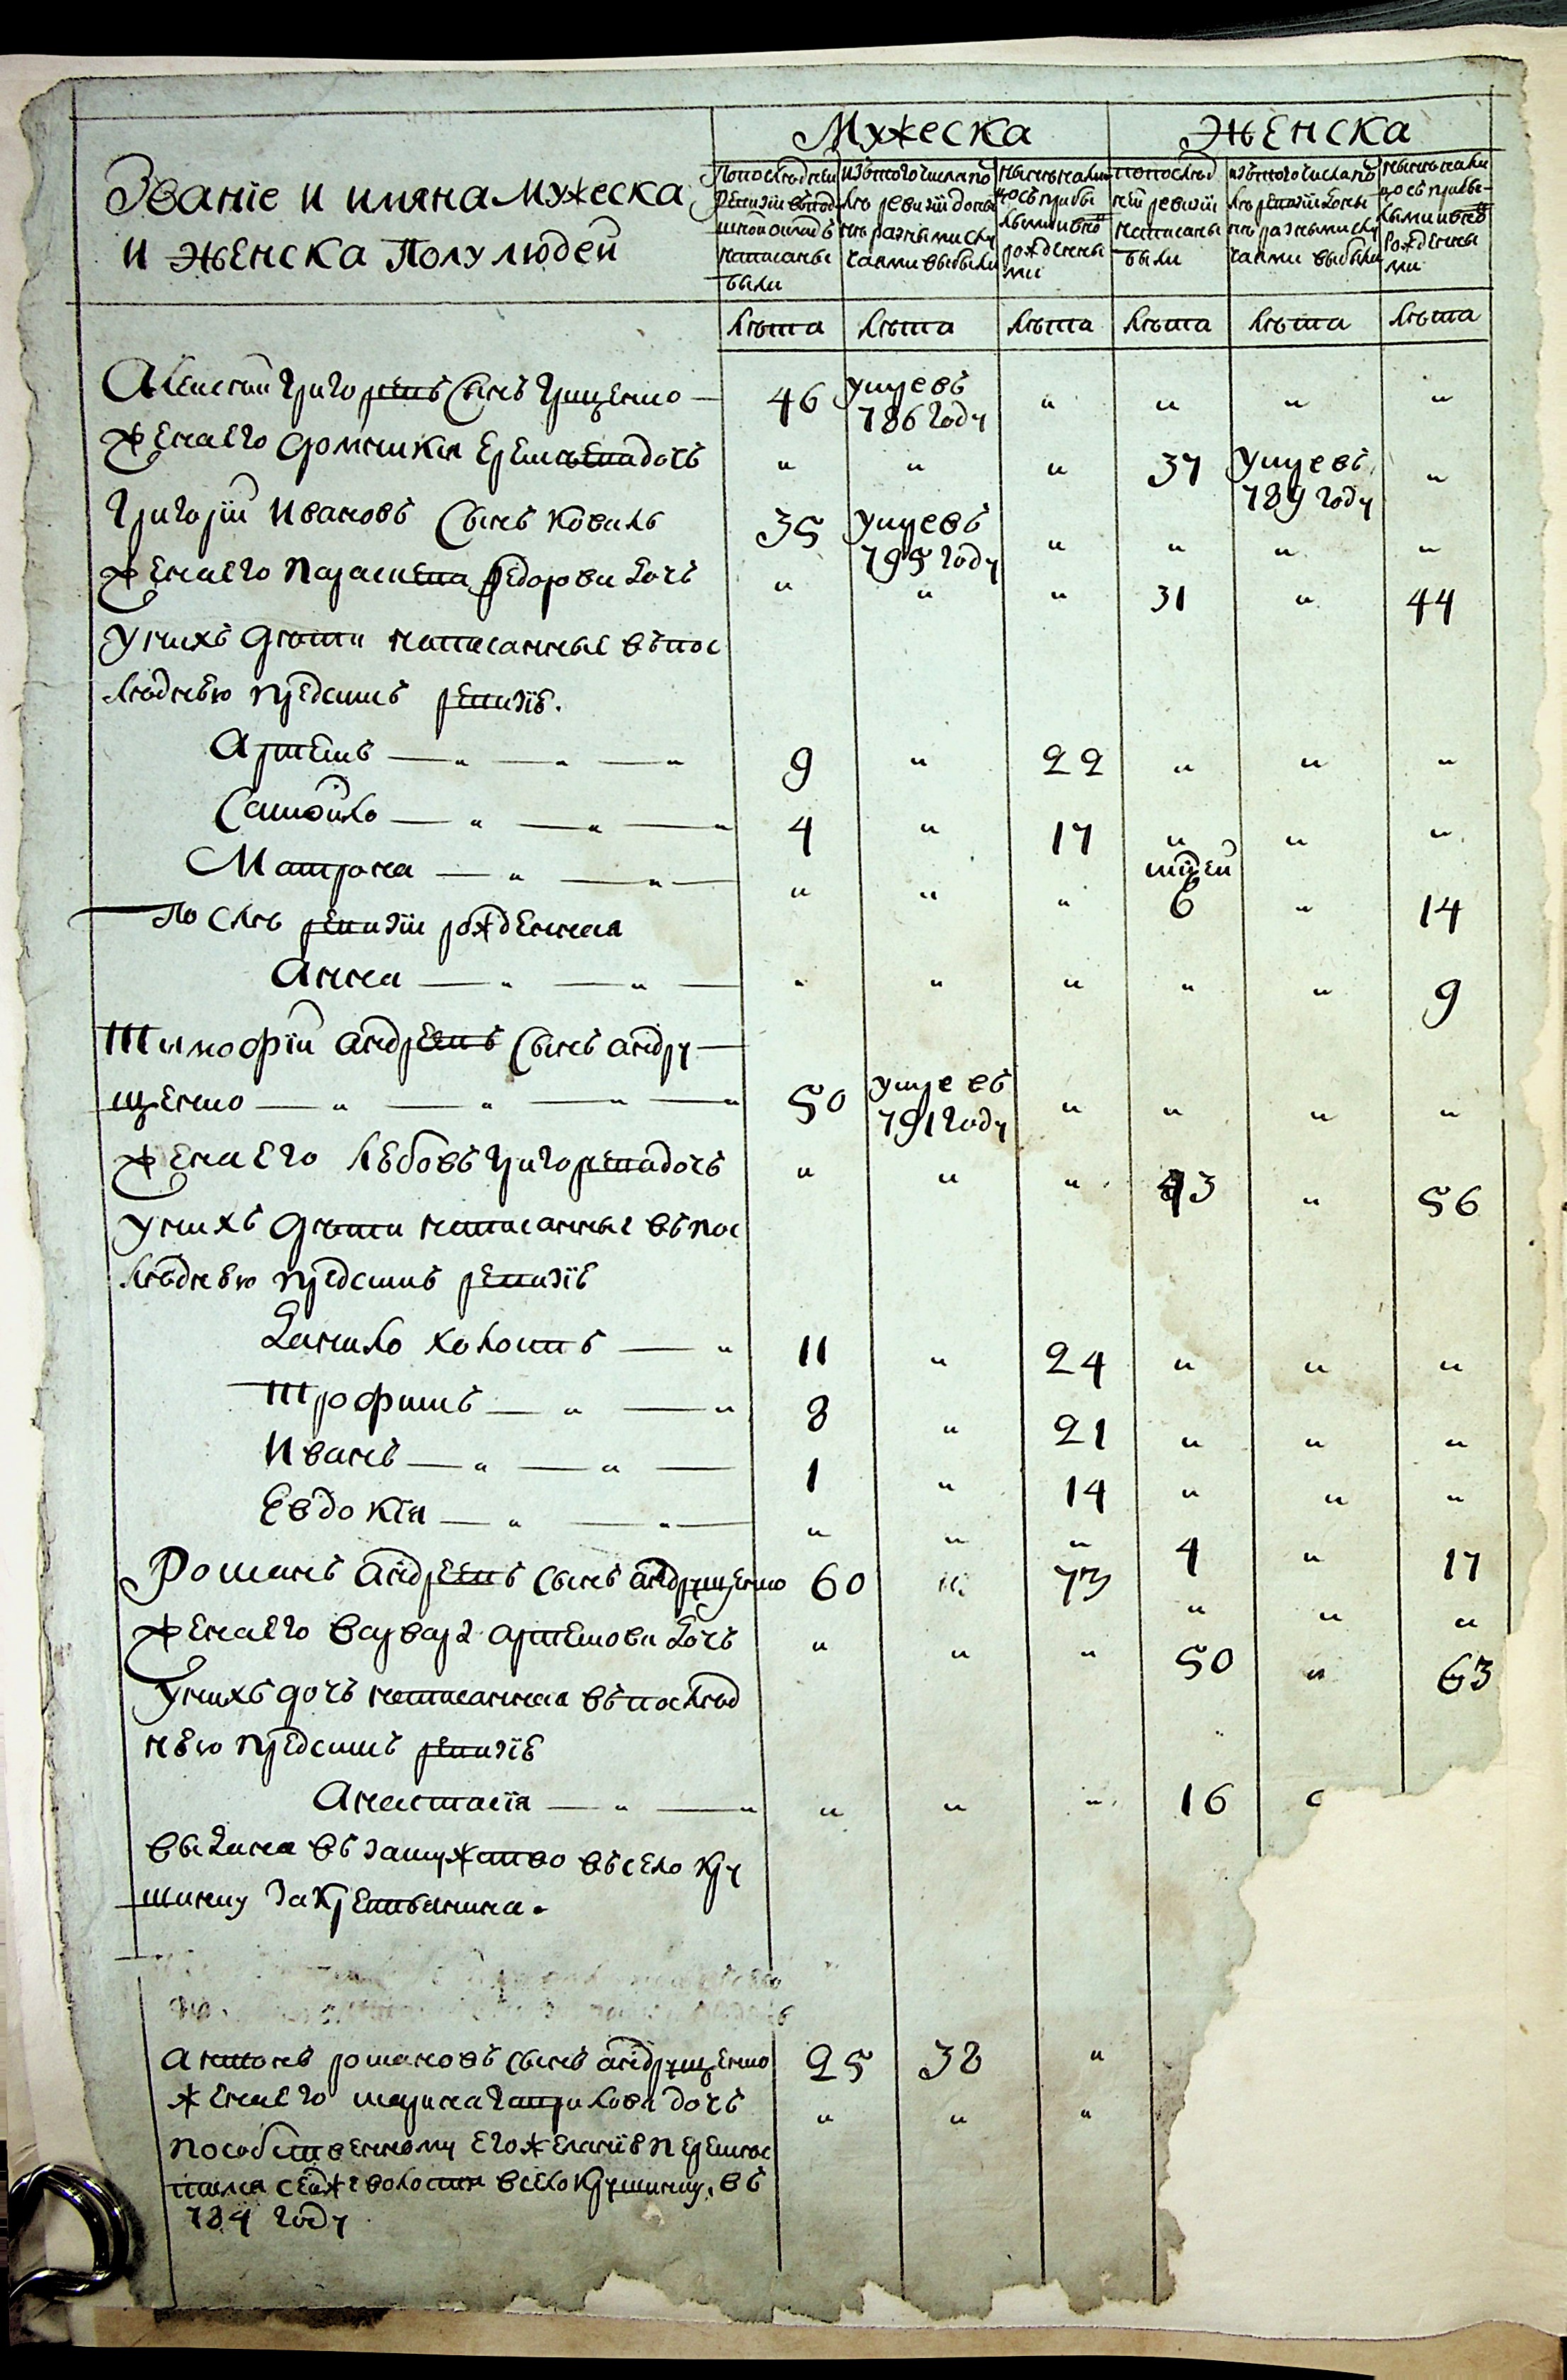 Мужеска Женска
Званіе и имяна мужеска
и женска полу людей
По последней ревизіи въ подушной окладъ написаны были
Изъ того числа после ревизіи до ныне разными случаями выбыли
Ныне на лицо съ прибылыми и вновь рожденными
По последней ревизіи написаны были
Изъ того числа после ревизіи до ныне разными случаями выбыли
Ныне на лицо съ прибылыми и вновь рожденными
лѣта лѣта лѣта лѣта лѣта лѣта
Алексей Григоревъ сынъ Грищенко — 46 умре въ 786 году " " " "
Жена его Домникия Еремѣева дочь " " " 37 умре въ 789 году "
Григорій Ивановъ сынъ Коваль 35 умре въ 795 году " " " "
Жена его Параскева Федорова дочь " " " 31 " 44
У нихъ дѣти написанные въ пос
лѣднею предсимъ ревизіе.
Артемъ — " — " — " 9 " 22 " " "
Самойло — " — " — " 4 " 17 " " "
Матрона — " — " — " " " тойей 6 " 14
После ревизіи рожденная
Анна — " — " — " " " " " 9
Тимофій Андреевъ сынъ Андру —
щенко — " — " — " — " 50 умре въ 791 году " " " "
Жена его Любовъ Григорева дочь " " " 43 " 56
У нихъ дѣти написанные въ пос
лѣднею предсимъ ревизіе
Данило холостъ — " 11 " 24 " " "
Трофимъ — " — " 8 " 21 " " "
Иванъ — " — " — 1 " 14 " " "
Евдокія — " — " — " " " 4 " 17
Романъ Андреевъ сынъ Андрущенко 60 " 73 " " "
Жена его Варвара Артемова дочь " " " 50 " 63
У нихъ дочь написанная въ послѣд
нею предсимъ ревизіе
Анастасія — " — " " " " 16
выдана въ замужство въ село Кру
шинку за крестьянина.
Антонъ Романовъ сынъ Андрущенко 25 38 "
Жена его Марина Гаврилова дочь " " "
по собственному его желанію перешол
тамъ сей же волости в село Крушинку, въ
784 году